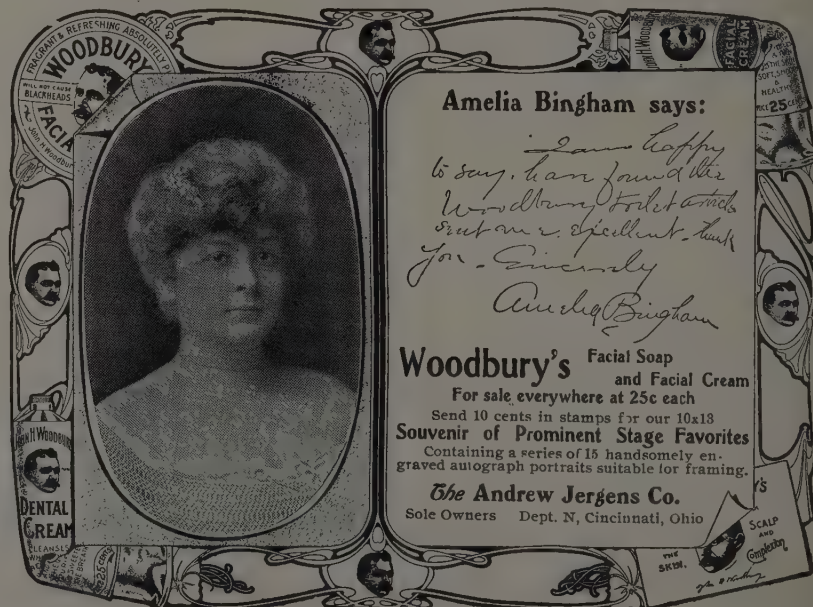 FRAGRANT & REFRESHING ABSOLUTELY P
WOODBURY
WILL NOT CAUSE
BLACKHEADS
FACIA
John H Woodbur
JOHN H WOODBU
FACIAL
CREAM
SOFT, S
&
HEALTH
ICE 25 CE
Amelia Bingham says:
I am happy
to say, have found the
Woodbury toilet articles
sent me excellent. thank
you. Sincerely
Amelia Bingham
Woodbury's Facial Soap
and Facial Cream
For sale everywhere at 25c each
Send 10 cents in stamps for our 10x13
Souvenir of Prominent Stage Favorites
Containing a series of 15 handsomely en-
graved autograph portraits suitable for framing.
The Andrew Jergens Co.
Sole Owners Dept. N, Cincinnati, Ohio
HN H WOODBU
DENTAL
CREAM
CLEANSE
25 CENTS
'S
SCALP
AND
Complexion
THE
SKIN,
John H Woodbury